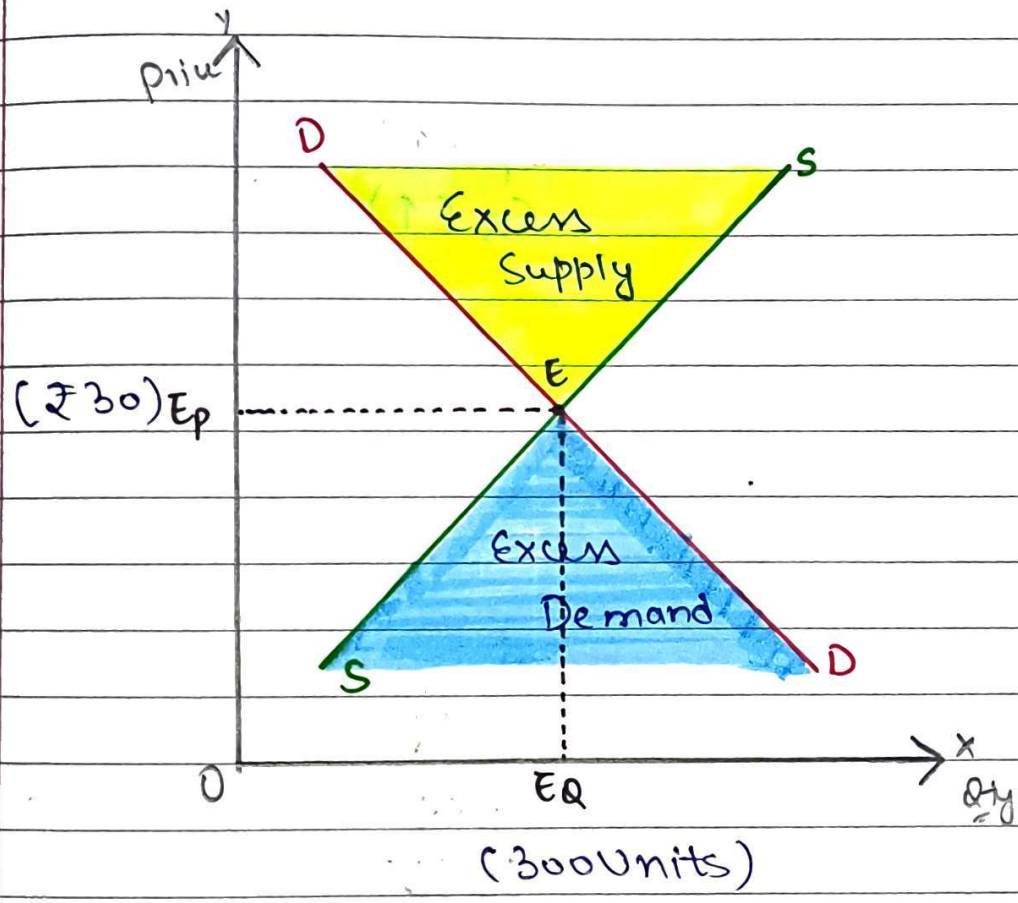 Y
Price
D
S
Excess
Supply
E
(₹30) Ep
Excess
Demand
S
D
X
O
EQ
Qty
(300 Units)